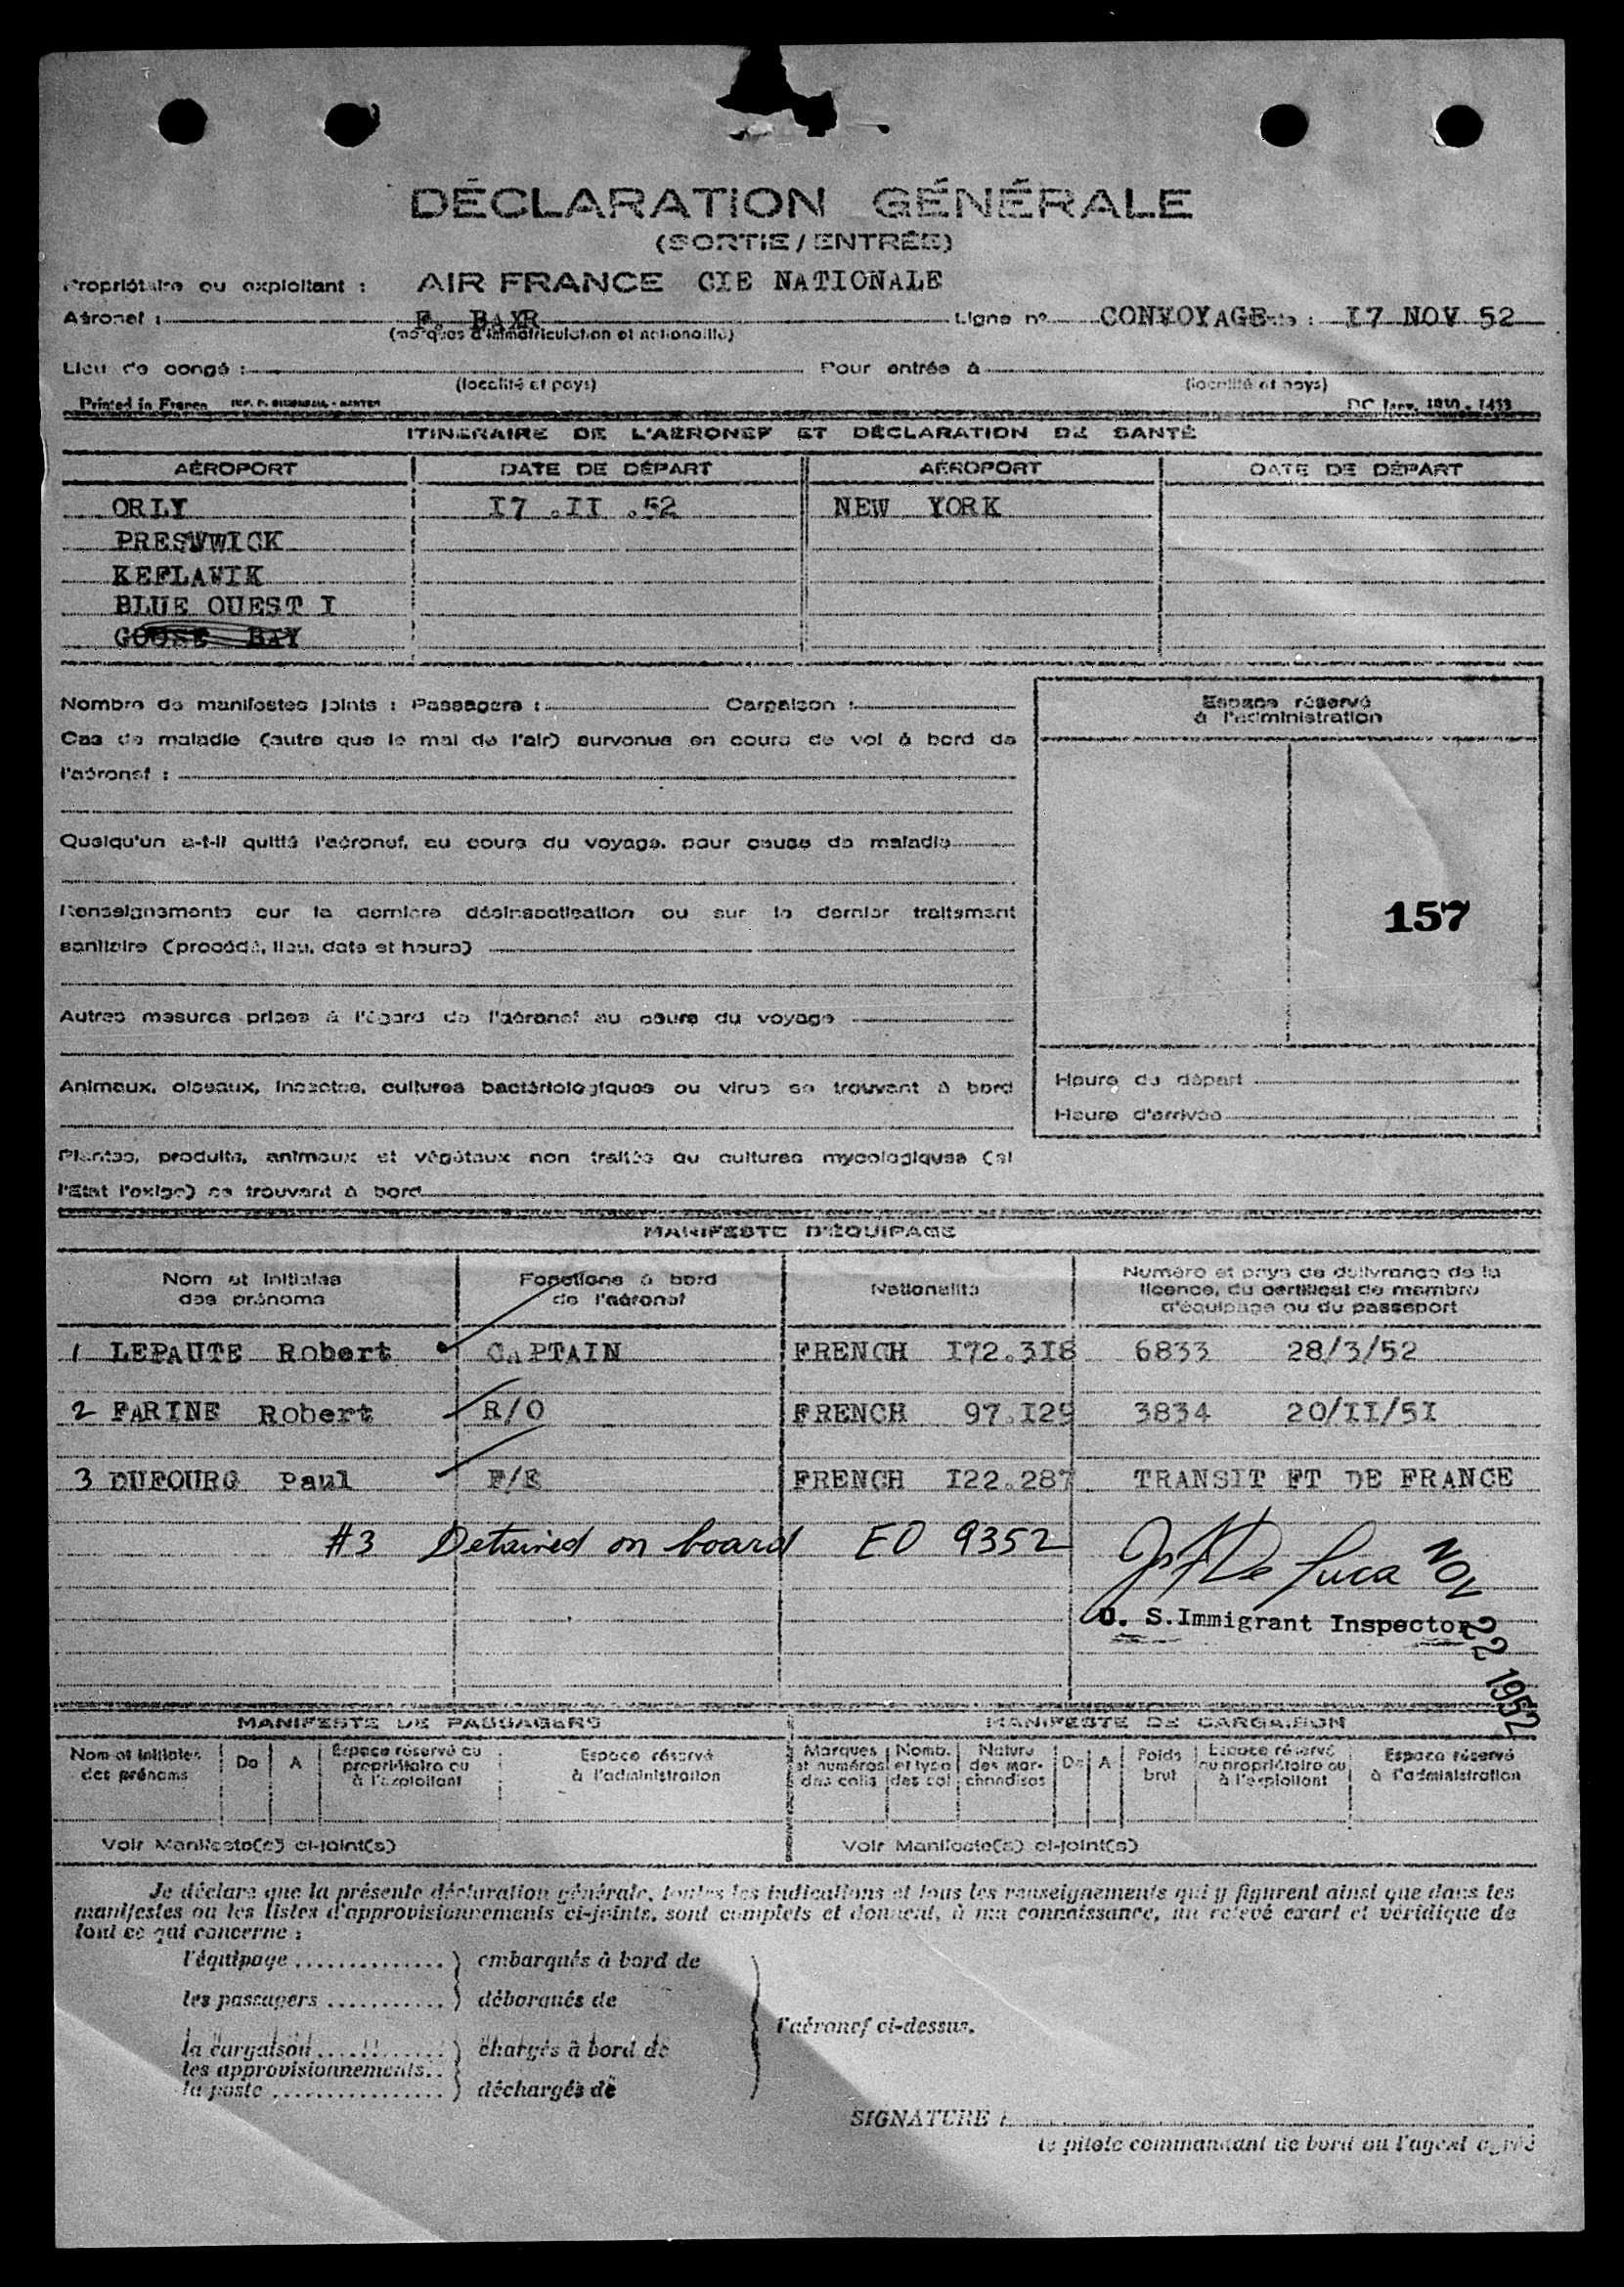 DÉCLARATION GÉNÉRALE
(SORTIE / ENTRÉE)
Propriétaire ou exploitant : AIR FRANCE CIE NATIONALE
Aéronef : F. BAXR Ligne nº CONVOYAGE : 17 NOV 52
(marques d'immatriculation et nationalité)
Lieu de congé : Pour entrée à
(localité et pays) (localité et pays)
Printed in France
ITINÉRAIRE DE L'AÉRONEF ET DÉCLARATION DE SANTÉ
AÉROPORT DATE DE DÉPART AÉROPORT DATE DE DÉPART
ORLY I7 .II .52 NEW YORK
PRESWWICK
KEFLAVIK
BLUE OUEST I
GOOSE BAY
Nombre de manifestes joints : Passagers : Cargaison :
Espace réservé
à l'administration
Cas de maladie (autre que le mal de l'air) survenus en cours de vol à bord de
l'aéronef :
Quelqu'un a-t-il quitté l'aéronef, au cours du voyage, pour cause de maladie
Renseignements sur la dernière désinsectisation ou sur le dernier traitement
sanitaire (procédé, lieu, date et heure)
157
Autres mesures prises à l'égard de l'aéronef au cours du voyage
Animaux, oiseaux, insectes, cultures bactériologiques ou virus se trouvant à bord
Heure du départ
Heure d'arrivée
Plantes, produits, animaux et végétaux non traités ou cultures mycologiques (si
l'Etat l'exige) se trouvant à bord
MANIFESTE D'ÉQUIPAGE
Nom et initiales
des prénoms
Fonctions à bord
de l'aéronef
Nationalité
Numéro et pays de délivrance de la
licence, du certificat de membre
d'équipage ou du passeport
1 LEPAUTE Robert CAPTAIN FRENCH I72.3I8 6833 28/3/52
2 FARINE Robert R/O FRENCH 97.I29 3834 20/II/5I
3 DUFOURG Paul F/E FRENCH I22.287 TRANSIT FT DE FRANCE
#3 Detained on board EO 9352
De Luca
NOV 22 1952
U. S.Immigrant Inspector
MANIFESTE DE PASSAGERS MANIFESTE DE CARGAISON
Nom et initiales
des prénoms
De
A
Espace réservé au
propriétaire ou
à l'exploitant
Espace réservé
à l'administration
Marques
et numéros
des colis
Nomb.
et type
des col
Nature
des mar-
chandises
De
A
Poids
brut
Espace réservé
au propriétaire ou
à l'exploitant
Espace réservé
à l'administration
Voir Manifeste(s) ci-joint(s) Voir Manifeste(s) ci-joint(s)
Je déclare que la présente déclaration générale, toutes les indications et tous les renseignements qui y figurent ainsi que dans les
manifestes ou les listes d'approvisionnements ci-joints, sont complets et donnent, à ma connaissance, un relevé exact et véridique de
tout ce qui concerne :
l'équipage .............. embarqués à bord de
les passagers ........... débarqués de
l'aéronef ci-dessus.
la cargaison ............ chargés à bord de
les approvisionnements..
la poste ................ déchargés de
SIGNATURE :
le pilote commandant de bord ou l'agent agréé